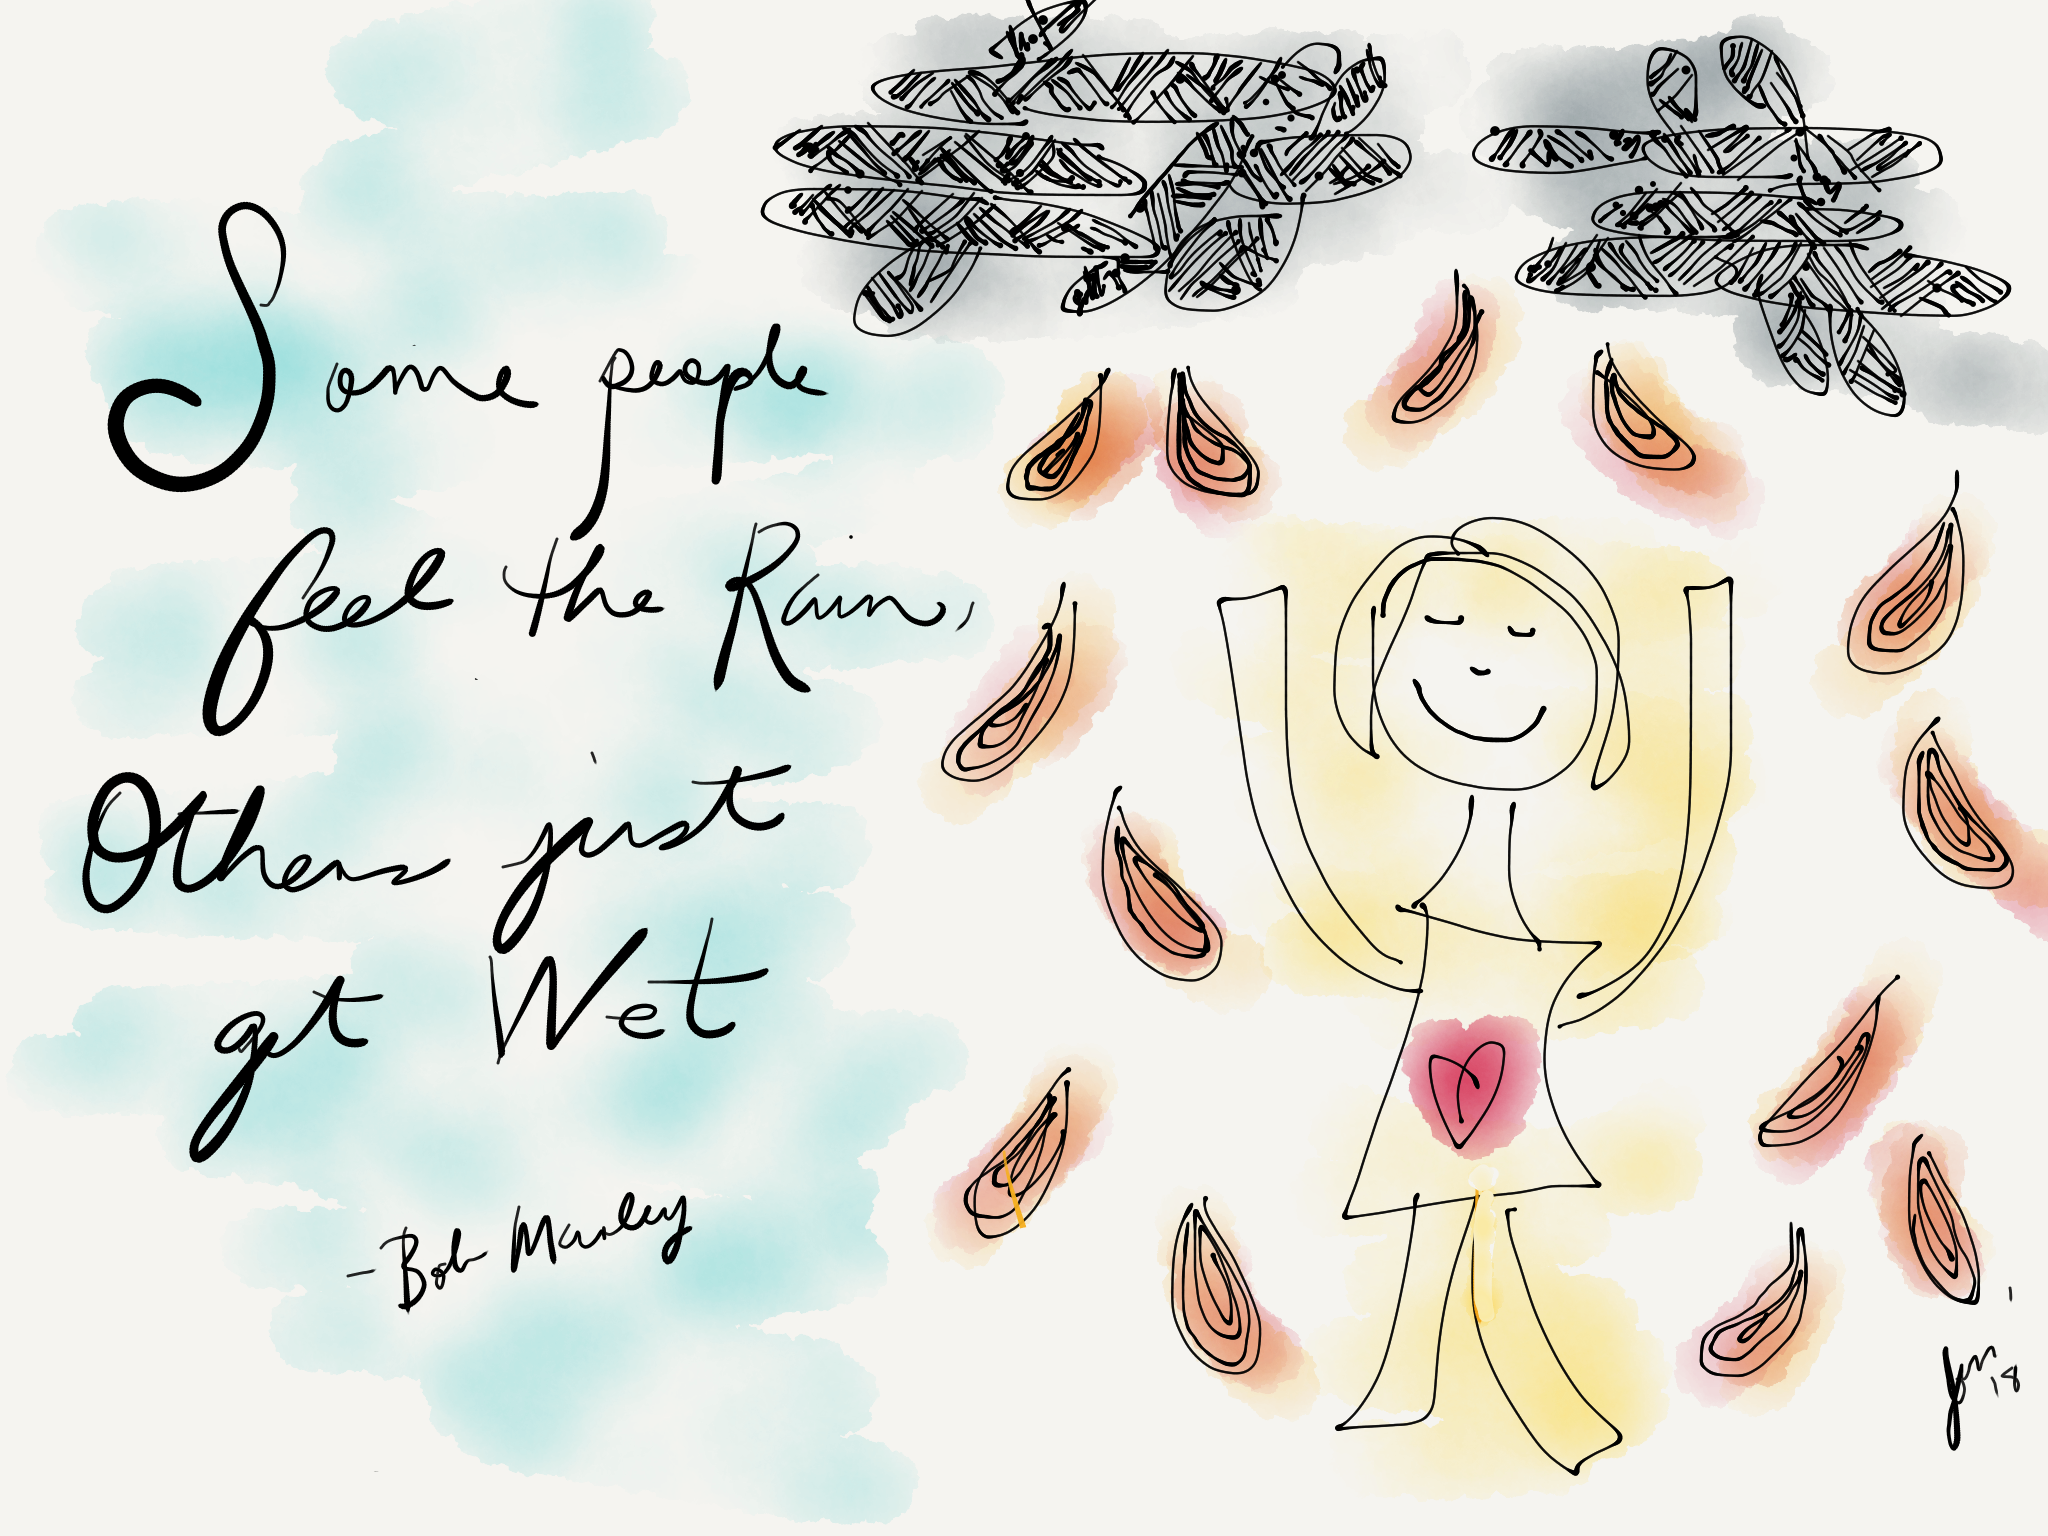 Some people
feel the Rain,
Others just
get Wet
- Bob Marley